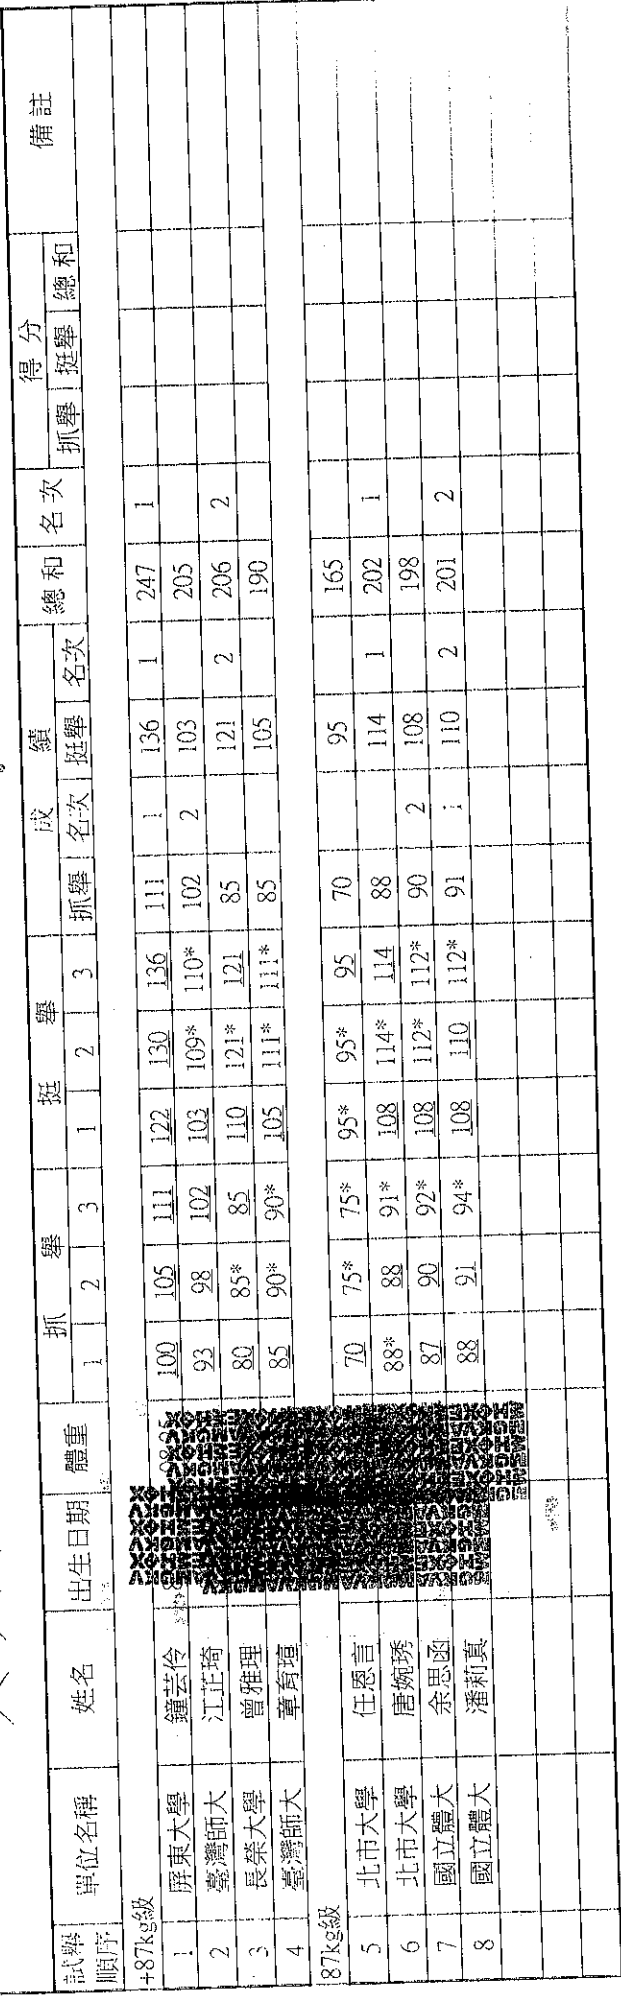 試舉順序 單位名稱 姓名 出生日期 體重 抓舉 挺舉 成績 總和 名次 得分 備註
1 2 3 1 2 3 抓舉 名次 挺舉 名次 抓舉 挺舉 總和
+87kg級
1 屏東大學 鐘芸伶 100 105 111 122 130 136 111 1 136 1 247 1
2 臺灣師大 江芷琦 93 98 102 103 109* 110* 102 2 103 205
3 長榮大學 曾雅理 80 85* 85 110 121* 121 85 121 2 206 2
4 臺灣師大 章育瑄 85 90* 90* 105 111* 111* 85 105 190
87kg級
5 北市大學 任恩言 70 75* 75* 95* 95* 95 70 95 165
6 北市大學 唐婉琇 88* 88 91* 108 114* 114 88 114 1 202 1
7 國立體大 余思函 87 90 92* 108 112* 112* 90 2 108 198
8 國立體大 潘莉真 88 91 94* 108 110 112* 91 1 110 2 201 2